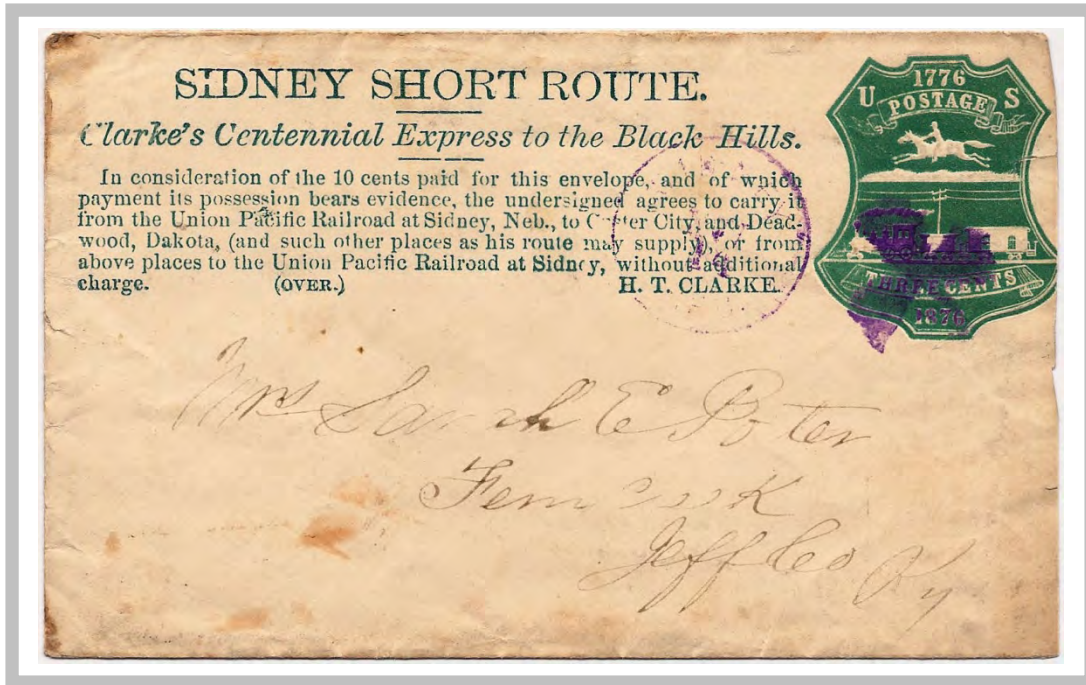 SIDNEY SHORT ROUTE.
Clarke's Centennial Express to the Black Hills.
In consideration of the 10 cents paid for this envelope, and of which
payment its possession bears evidence, the undersigned agrees to carry it
from the Union Pacific Railroad at Sidney, Neb., to Custer City, and Dead-
wood, Dakota, (and such other places as his route may supply), or from
above places to the Union Pacific Railroad at Sidney, without additional
charge. (OVER.) H. T. CLARKE.
1776
U POSTAGE S
THREE CENTS
1876
Mrs Sarah E Porter
Jeff Co Ky